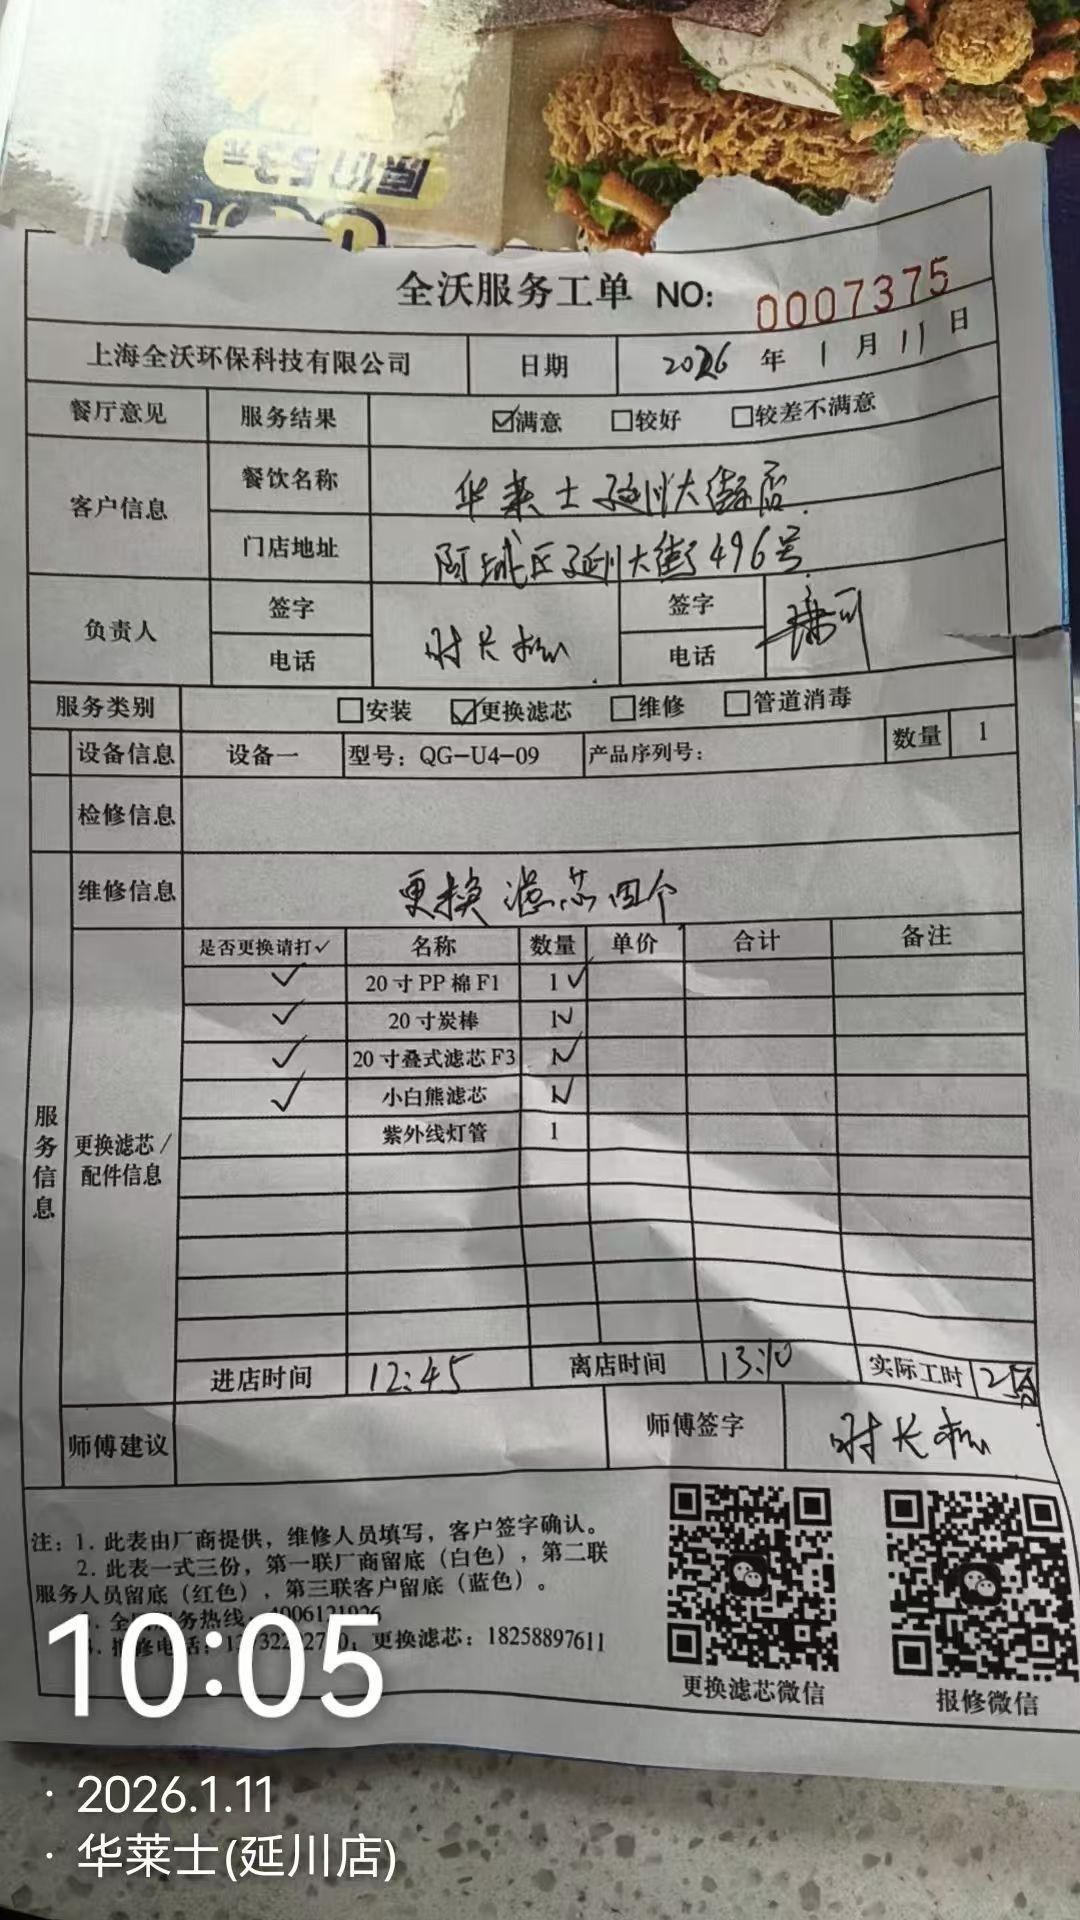 原价53元
全沃服务工单 NO: 0007375
上海全沃环保科技有限公司 日期 2026 年 1 月 11 日
餐厅意见 服务结果 ☑满意 ☐较好 ☐较差不满意
客户信息 餐饮名称 华莱士延川大街店
门店地址 阿城区延川大街496号
负责人 签字 电话 时长松 签字 电话
服务类别 ☐安装 ☑更换滤芯 ☐维修 ☐管道消毒
设备信息 设备一 型号：QG-U4-09 产品序列号： 数量 1
检修信息
维修信息 更换滤芯四个
服务信息
更换滤芯/配件信息
是否更换请打✓ 名称 数量 单价 合计 备注
✓ 20寸PP棉F1 1 ✓
✓ 20寸炭棒 1 ✓
✓ 20寸叠式滤芯F3 1 ✓
✓ 小白熊滤芯 1 ✓
紫外线灯管 1
进店时间 12:45 离店时间 13:10 实际工时 25分
师傅建议 师傅签字 时长松
注：1. 此表由厂商提供，维修人员填写，客户签字确认。
2. 此表一式三份，第一联厂商留底（白色），第二联
服务人员留底（红色），第三联客户留底（蓝色）。
更换滤芯：18258897611
更换滤芯微信 报修微信
10:05
· 2026.1.11
· 华莱士(延川店)